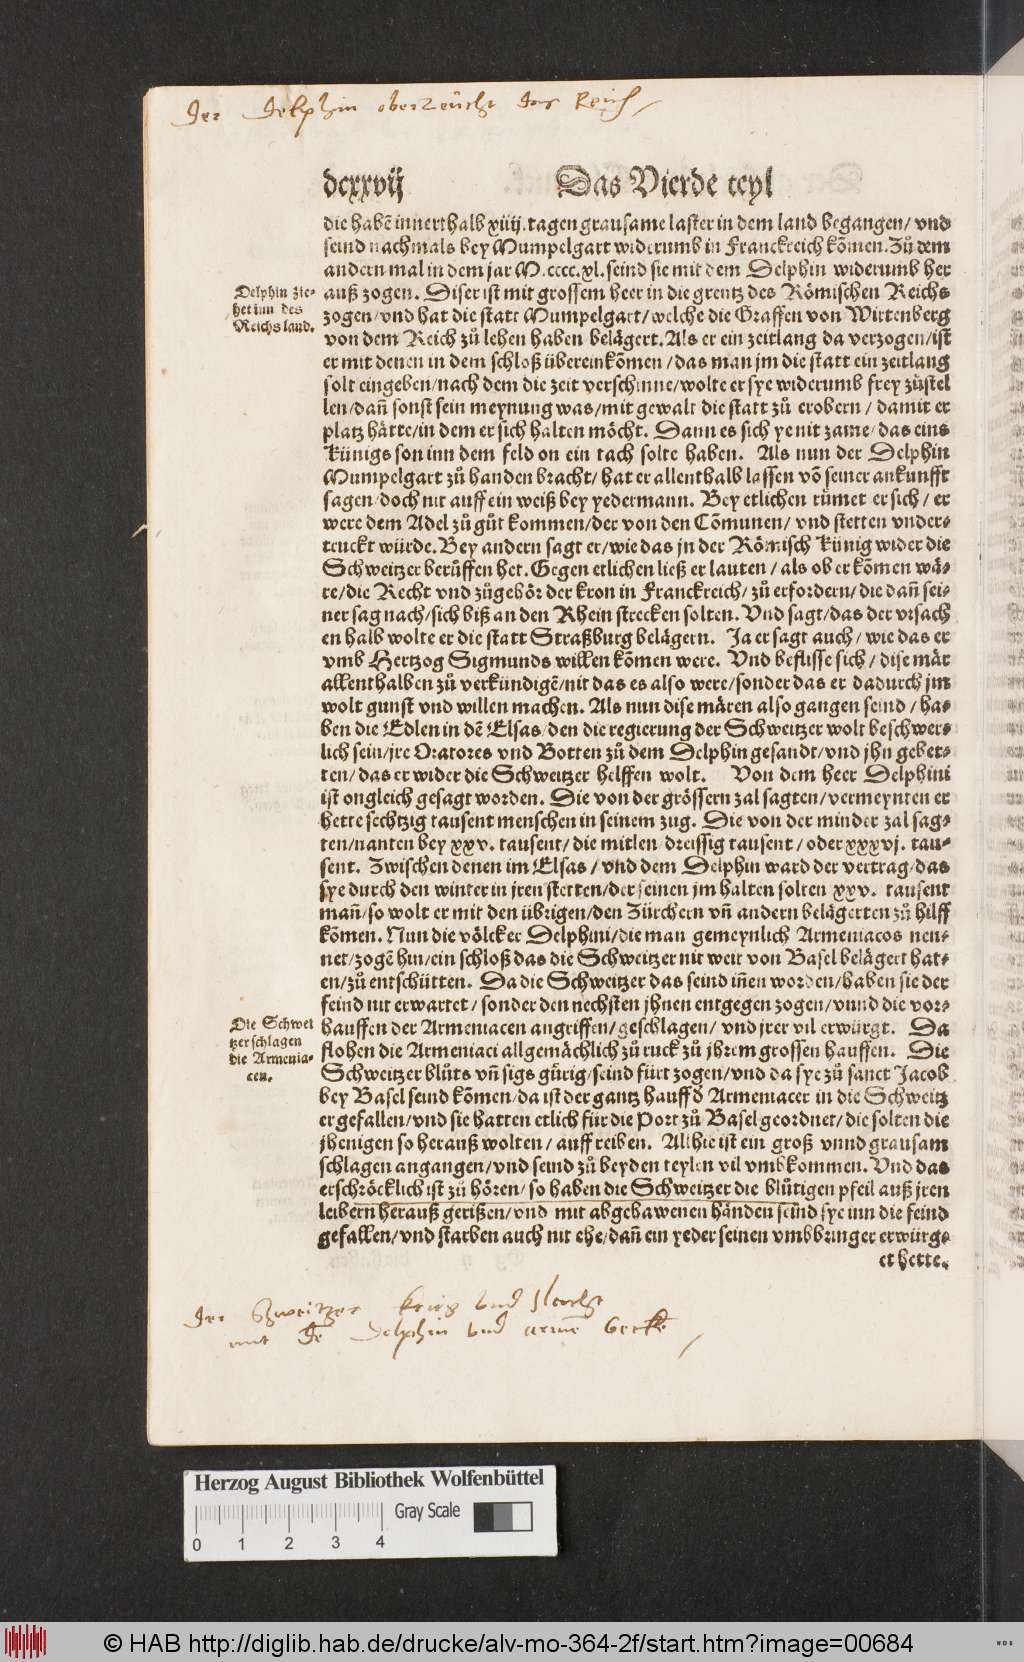 der Delphin oberzeücht das Reich
dcxxvij Das Vierde teyl
die habẽ innerthalb xiiij. tagen grausame laster in dem land begangen/ vnd
seind nachmals bey Mumpelgart widerumb in Franckreich kõmen. Zů dem
andern mal in dem jar M.cccc.xl. seind sie mit dem Delphin widerumb her
Delphin zie-
het inn des
Reichs land.
auß zogen. Diser ist mit grossem heer in die grentz des Römischen Reichs
zogen/ vnd hat die statt Mumpelgart/ welche die Graffen von Wirtenberg
von dem Reich zů lehen haben belägert. Als er ein zeitlang da verzogen/ ist
er mit denen in dem schloß übereinkõmen/ das man jm die statt ein zeitlang
solt eingeben/ nach dem die zeit verschinne/ wolte er sye widerumb frey zůstel
len/ dañ sonst sein meynung was/ mit gewalt die statt zů erobern/ damit er
platz hätte/ in dem er sich halten möcht. Dann es sich ye nit zame/ das eins
Künigs son inn dem feld on ein tach solte haben. Als nun der Delphin
Mumpelgart zů handen bracht/ hat er allenthalb lassen võ seiner ankunfft
sagen/ doch nit auff ein weiß bey yedermann. Bey etlichen rümet er sich/ er
were dem Adel zů gůt kommen/ der von den Cõmunen/ vnd stetten vnder-
truckt würde. Bey andern sagt er/ wie das jn der Römisch Künig wider die
Schweitzer berüffen het. Gegen etlichen ließ er lauten/ als ob er kõmen wä-
re/ die Recht vnd zůgehör der kron in Franckreich/ zů erfordern/ die dañ sei-
ner sag nach/ sich biß an den Rhein strecken solten. Vnd sagt/ das der vrsach
en halb wolte er die statt Straßburg belägern. Ja er sagt auch/ wie das er
vmb Hertzog Sigmunds willen kõmen were. Vnd beflisse sich/ dise mär
allenthalben zů verkündigẽ/ nit das es also were/ sonder das er dadurch jm
wolt gunst vnd willen machen. Als nun dise mären also gangen seind/ ha-
ben die Edlen in dẽ Elsas/ den die regierung der Schweitzer wolt beschwer-
lich sein/ jre Oratores vnd Botten zů dem Delphin gesandt/ vnd jhn gebet-
ten/ das er wider die Schweitzer helffen wolt. Von dem heer Delphini
ist ongleich gesagt worden. Die von der grössern zal sagten/ vermeynten er
hette sechtzig tausent menschen in seinem zug. Die von der minder zal sag-
ten/ nanten bey xxv. tausent/ die mitlen/ dreissig tausent/ oder xxxvj. tau-
sent. Zwischen denen im Elsas/ vnd dem Delphin ward der vertrag/ das
sye durch den winter in jren stetten/ der seinen jm halten solten xxv. tausent
mañ/ so wolt er mit den übrigen/ den Zürchern vñ andern belägerten zů hilff
kõmen. Nun die völcker Delphini/ die man gemeynlich Armeniacos nen-
net/ zogẽ hin/ ein schloß das die Schweitzer nit weit von Basel belägert hat-
en/ zů entschütten. Da die Schweitzer das seind iñen worden/ haben sie der
feind nit erwartet/ sonder den nechsten jhnen entgegen zogen/ vnnd die vor-
Die Schwei
tzer schlagen
die Armenia-
cen.
hauffen der Armeniacen angriffen/ geschlagen/ vnd jrer vil erwürgt. Da
flohen die Armeniaci allgemächlich zů ruck zů jhrem grossen hauffen. Die
Schweitzer blůts vñ sigs gürig/ seind fürt zogen/ vnd da sye zů sanct Jacob
bey Basel seind kõmen/ da ist der gantz hauff d̃ Armeniacer in die Schweitz
er gefallen/ vnd sie hatten etlich für die Port zů Basel geordnet/ die solten die
jhenigen so herauß wolten/ auff reiben. Allhie ist ein groß vnnd grausam
schlagen angangen/ vnd seind zů beyden teylen vil vmbkommen. Vnd das
erschröcklich ist zů hören/ so haben die Schweitzer die blůtigen pfeil auß jren
leibern herauß gerißen/ vnd mit abgehawenen händen seind sye inn die feind
gefallen/ vnd starben auch nit ehe/ dañ ein yeder seinen vmbbringer erwürg-
et hette.
der Schweitzer krieg vnd schlacht
mit dẽ Delphin vnd armẽ Gecken
Herzog August Bibliothek Wolfenbüttel
Gray Scale
0 1 2 3 4
© HAB http://diglib.hab.de/drucke/alv-mo-364-2f/start.htm?image=00684